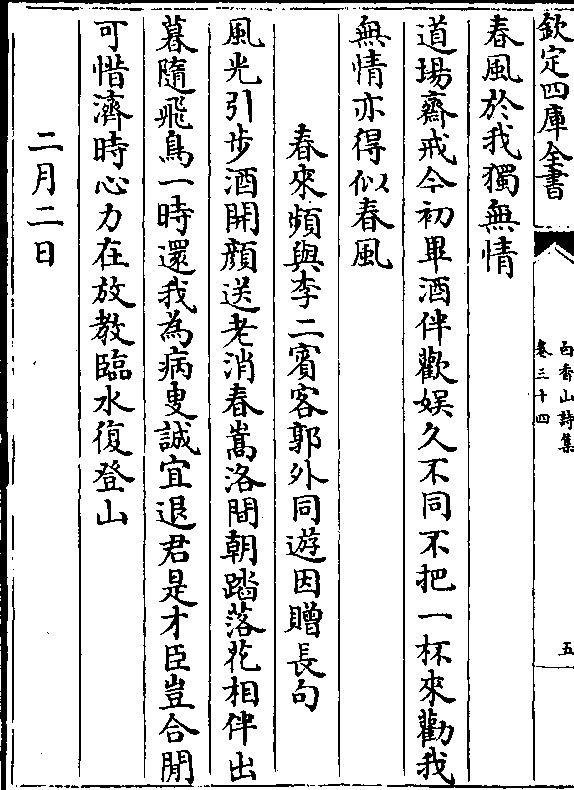 欽定四庫全書
白香山詩集
卷三十四
五
春風於我獨無情
道場齋戒今初畢酒伴歡娱久不同不把一杯來勸我
無情亦得似春風
春來頻與李二賓客郭外同遊因贈長句
風光引歩酒開顔送老消春嵩洛間朝踏落花相伴出
暮隨飛鳥一時還我為病叟誠宜退君是才臣豈合閒
可惜濟時心力在放教臨水復登山
二月二日